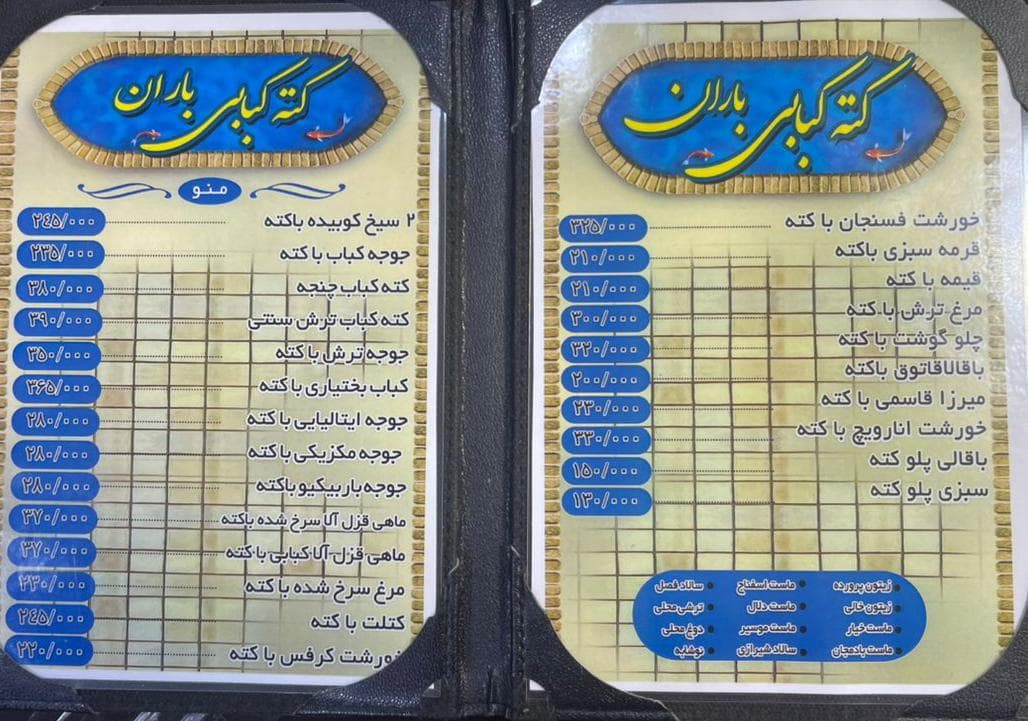 کته کبابی باران
خورشت فسنجان با کته ۳۲۵/۰۰۰
قرمه سبزی باکته ۲۱۰/۰۰۰
قیمه با کته ۲۱۰/۰۰۰
مرغ ترش با کته ۳۰۰/۰۰۰
چلو گوشت با کته ۳۲۰/۰۰۰
باقالاقاتوق باکته ۲۰۰/۰۰۰
میرزا قاسمی با کته ۲۳۰/۰۰۰
خورشت انارویچ با کته ۳۳۰/۰۰۰
باقالی پلو کته ۱۵۰/۰۰۰
سبزی پلو کته ۱۳۰/۰۰۰
زیتون پرورده • ماست اسفناج • سالاد فصل
زیتون خالی • ماست دلال • ترشی محلی
ماست خیار • ماست موسیر • دوغ محلی
ماست بادمجان • سالاد شیرازی • نوشابه
کته کبابی باران
منو
۲ سیخ کوبیده باکته ۲۴۵/۰۰۰
جوجه کباب با کته ۲۳۵/۰۰۰
کته کباب چنجه ۳۸۰/۰۰۰
کته کباب ترش سنتی ۳۹۰/۰۰۰
جوجه ترش با کته ۳۵۰/۰۰۰
کباب بختیاری با کته ۳۶۵/۰۰۰
جوجه ایتالیایی با کته ۲۸۰/۰۰۰
جوجه مکزیکی با کته ۲۸۰/۰۰۰
جوجه باربیکیو باکته ۲۸۰/۰۰۰
ماهی قزل آلا سرخ شده باکته ۳۷۰/۰۰۰
ماهی قزل آلا کبابی با کته ۳۷۰/۰۰۰
مرغ سرخ شده با کته ۲۳۰/۰۰۰
کتلت با کته ۲۴۵/۰۰۰
خورشت کرفس با کته ۲۲۰/۰۰۰